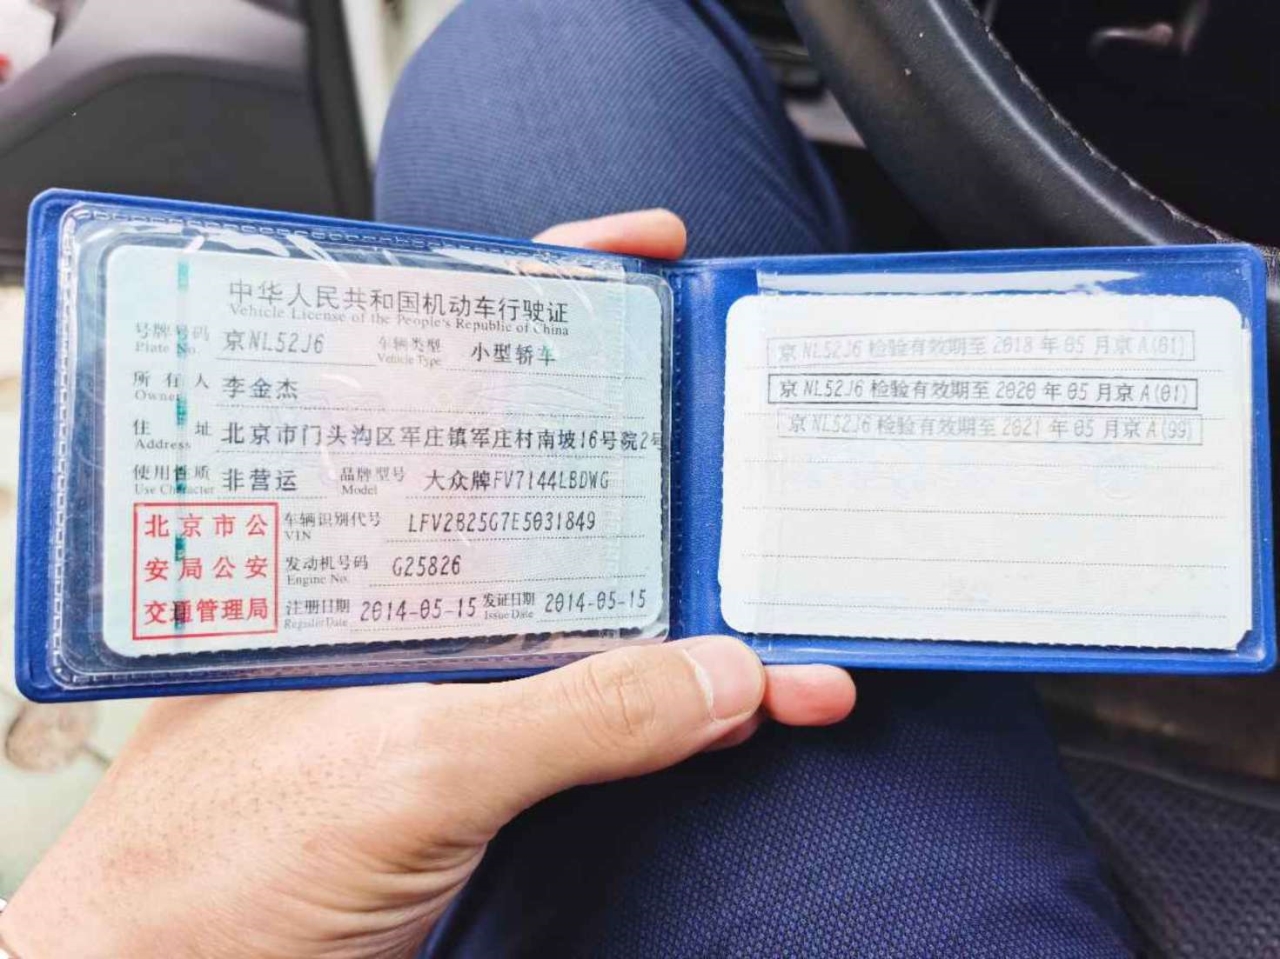 中华人民共和国机动车行驶证
Vehicle License of the People's Republic of China
号牌号码 京NL52J6 车辆类型 小型轿车
Plate No. Vehicle Type
所有人 李金杰
Owner
住址 北京市门头沟区军庄镇军庄村南坡16号院2号
Address
使用性质 非营运 品牌型号 大众牌FV7144LBDWG
Use Character Model
北京市公
安局公安
交通管理局
车辆识别代号 LFV2B25G7E5031849
VIN
发动机号码 G25826
Engine No.
注册日期 2014-05-15 发证日期 2014-05-15
Register Date Issue Date
京NL52J6检验有效期至2018年05月京A(01)
京NL52J6检验有效期至2020年05月京A(01)
京NL52J6检验有效期至2021年05月京A(99)